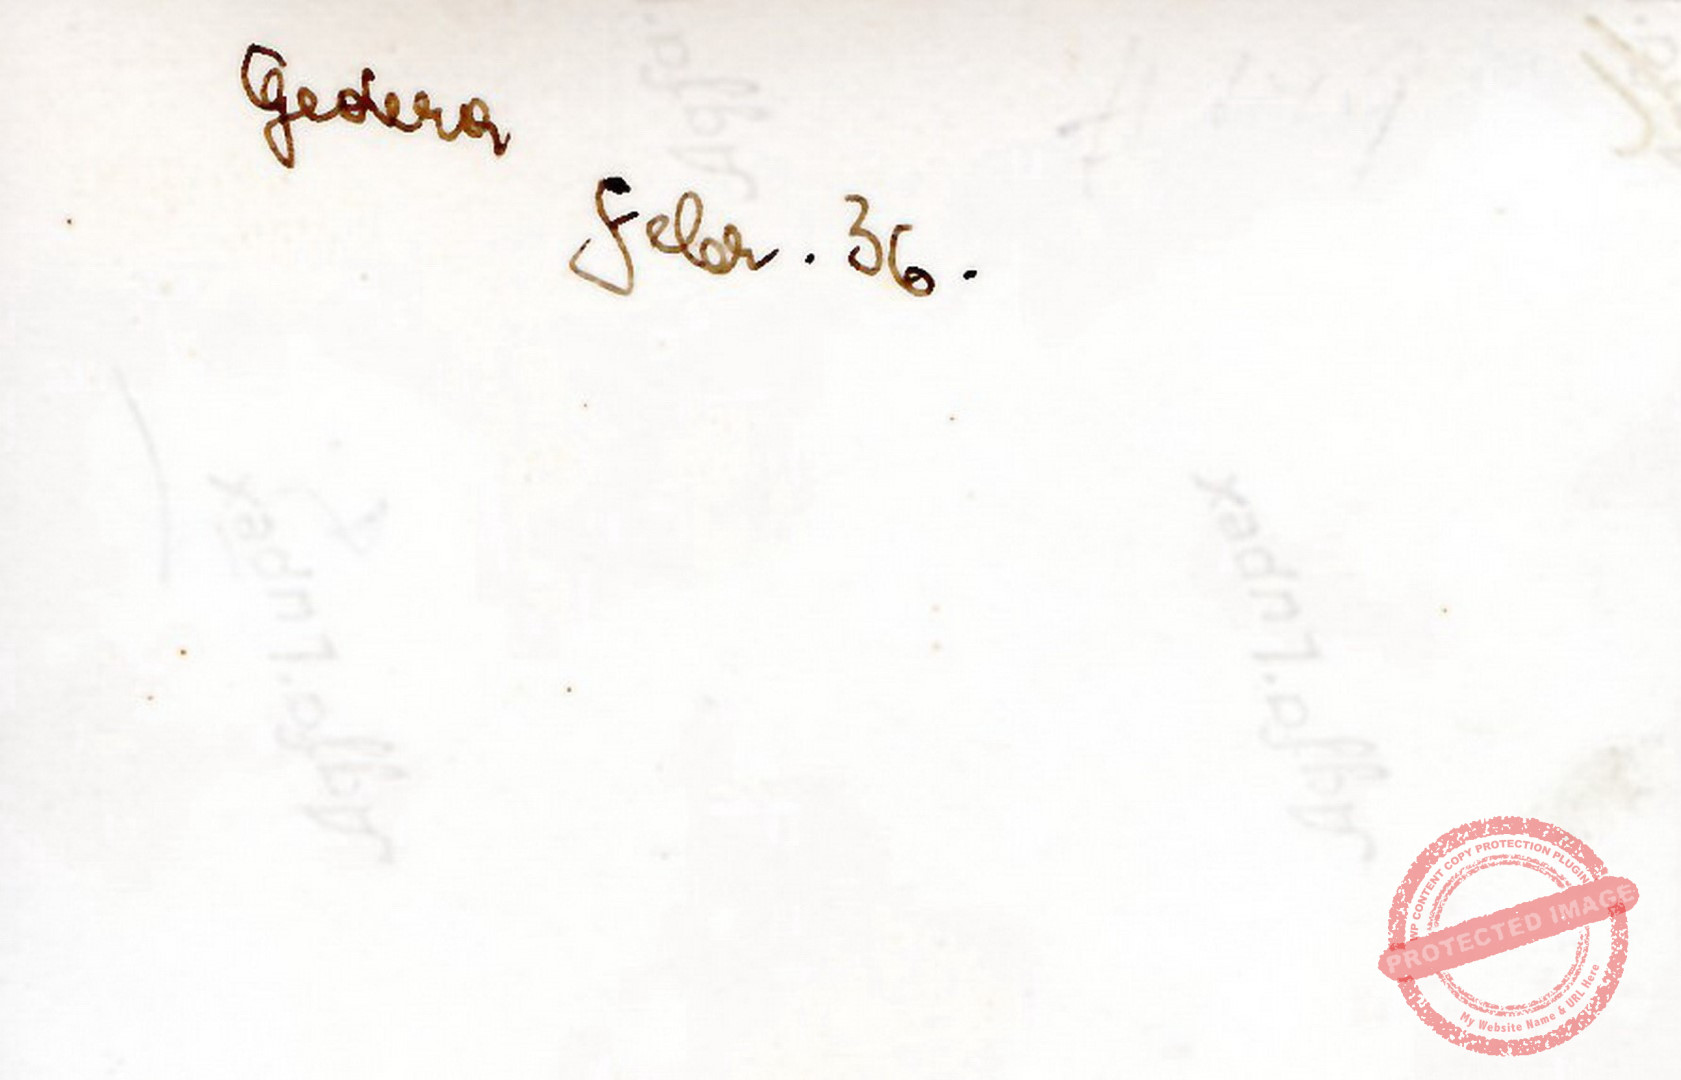 Gedera
Febr. 36.
WP CONTENT COPY PROTECTION PLUGIN
PROTECTED IMAGE
My Website Name & URL Here